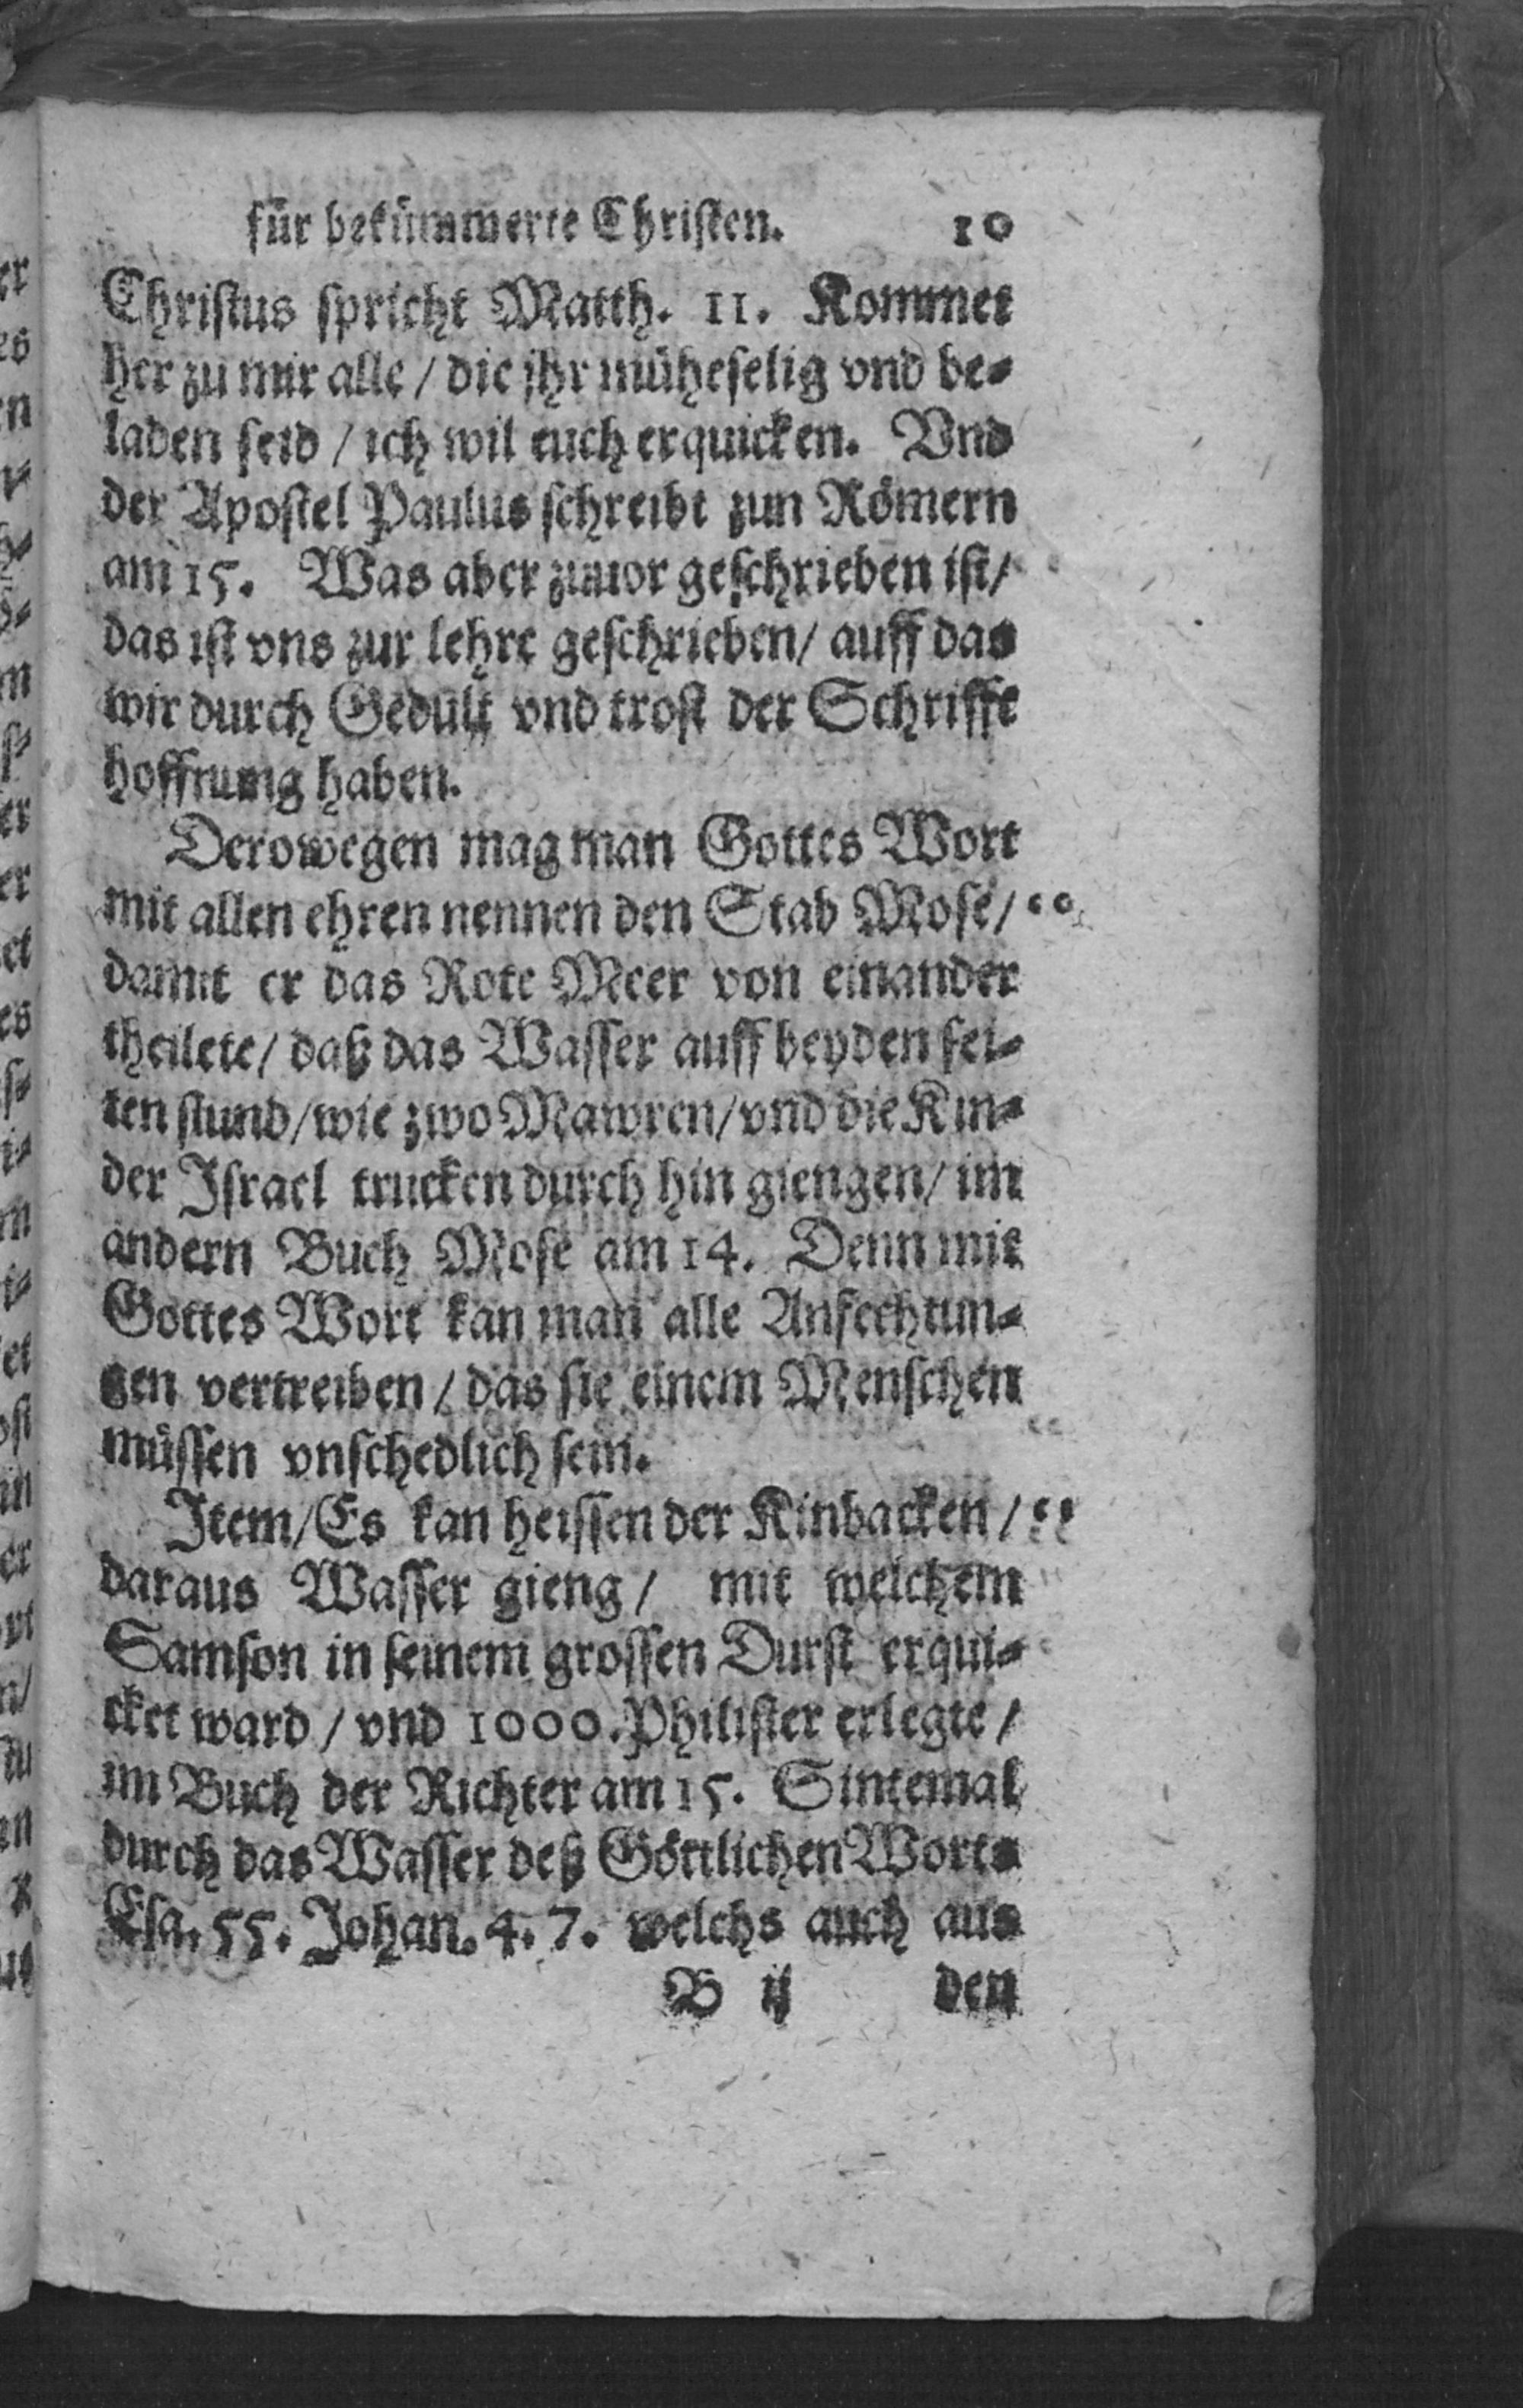 für bekümmerte Christen. 10
Christus spricht Matth. 11. Kommet
her zu mir alle / die jhr müheselig vnd be-
laden seid / ich wil euch erquicken. Vnd
der Apostel Paulus schreibt zun Römern
am 15. Was aber zuuor geschrieben ist /
das ist vns zur lehre geschrieben / auff das
wir durch Gedult vnd trost der Schrifft
hoffnung haben.
Derowegen mag man Gottes Wort
mit allen ehren nennen den Stab Mose /
damit er das Rote Meer von einander
theilete / daß das Wasser auff beyden sei-
ten stund / wie zwo Mawren / vnd die Kin-
der Israel trucken durch hin giengen / im
andern Buch Mose am 14. Denn mit
Gottes Wort kan man alle Anfechtun-
gen vertreiben / das sie einem Menschen
müssen vnschedlich sein.
Item / Es kan heissen der Kinbacken /
daraus Wasser gieng / mit welchem
Samson in seinem grossen Durst erqui-
cket ward / vnd 1000. Philister erlegte /
im Buch der Richter am 15. Sintemal
durch das Wasser deß Göttlichen Worts
Esa. 55. Johan. 4. 7. welchs auch aus
B ij den